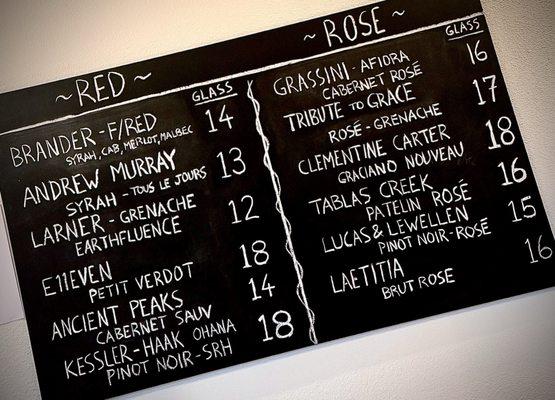 ~ RED ~
GLASS
BRANDER - F/RED 14
SYRAH, CAB, MERLOT, MALBEC
ANDREW MURRAY 13
SYRAH - TOUS LE JOURS
LARNER - GRENACHE 12
EARTHFLUENCE
E11EVEN 18
PETIT VERDOT
ANCIENT PEAKS 14
CABERNET SAUV
KESSLER-HAAK OHANA 18
PINOT NOIR - SRH
~ ROSE ~
GLASS
GRASSINI - AFIORA 16
CABERNET ROSÉ
TRIBUTE TO GRACE 17
ROSÉ - GRENACHE
CLEMENTINE CARTER 18
GRACIANO NOUVEAU
TABLAS CREEK 16
PATELIN ROSÉ
LUCAS & LEWELLEN 15
PINOT NOIR - ROSÉ
LAETITIA 16
BRUT ROSE